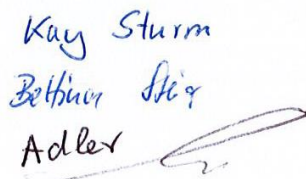 Kay Sturm
Bettina
Adler